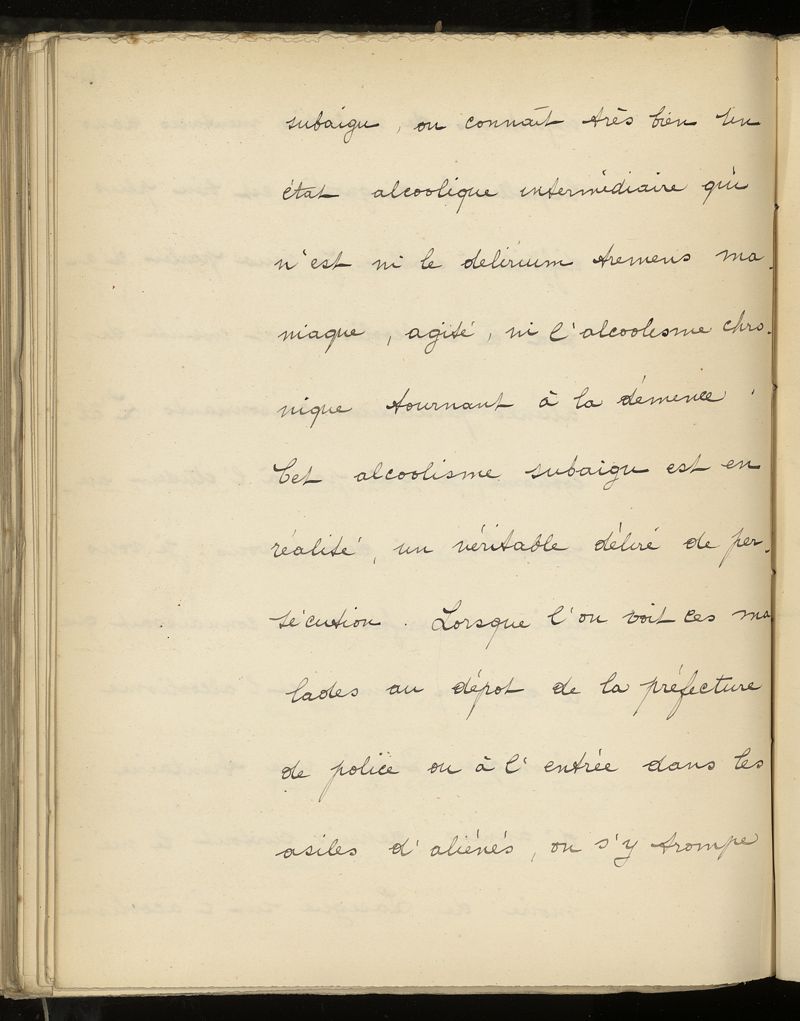 subaigu, on connaît très bien un
état alcoolique intermédiaire qui
n'est ni le delirium tremens ma-
niaque, agité, ni l'alcoolisme chro-
nique tournant à la démence.
Cet alcoolisme subaigu est en
réalité, un véritable délire de per-
sécution. Lorsque l'on voit ces ma
lades au dépot de la préfecture
de police ou à l'entrée dans les
asiles d'aliénés, on s'y trompe